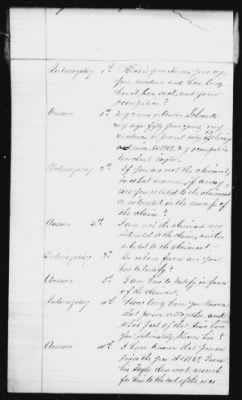 Interrogatory 1st What is your name, your age
your residence and how long
has it been such, and your
occupation?
Answer 1st My name is
my age fifty five years, my
residence is
since 1868, my occupation
Merchant Tailor.
Interrogatory 2d If you are not the claimant,
in what manner, if any,
are you related to the claimant
or interested in the success of
the claim?
Answer 2d I am not the claimant nor
interested in the claim, neither
related to the claimant.
Interrogatory 3d In whose favor are you
here to testify?
Answer 3d I am here to testify in favor
of the claimant.
Interrogatory 4th How long have you known
that person altogether, and
what part of that time have
you intimately known him?
Answer 4th I have known that person
since the year 1848.
for him to the end of the war